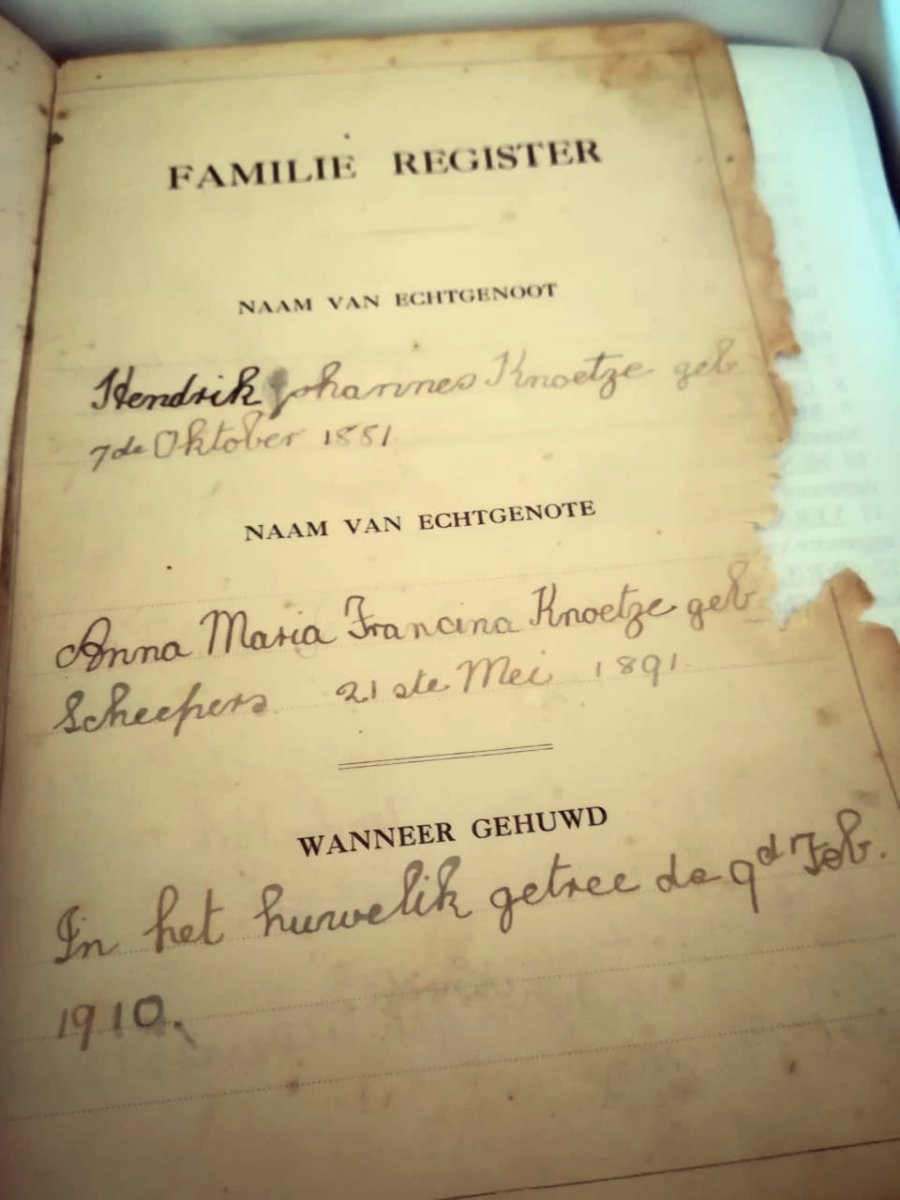 FAMILIE REGISTER
NAAM VAN ECHTGENOOT
Hendrik Johannes Knoetze geb
7de Oktober 1881
NAAM VAN ECHTGENOTE
Anna Maria Francina Knoetze geb
Scheepers 21ste Mei 1891
WANNEER GEHUWD
In het huwelik getree de 9d Feb.
1910.